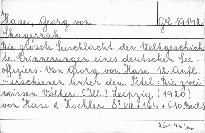 Hase, Georg von
Skagerrak
Die grösste Seeschlacht der Weltgeschich-
te. Erinnerungen eines deutschen See-
offiziers. Von Georg von Hase. 13. Aufl.
erschienen unter dem Titel: Die zwei
weissen Völker. Leipzig, (1920)
von Hase & Koehler 8° VIII+164+